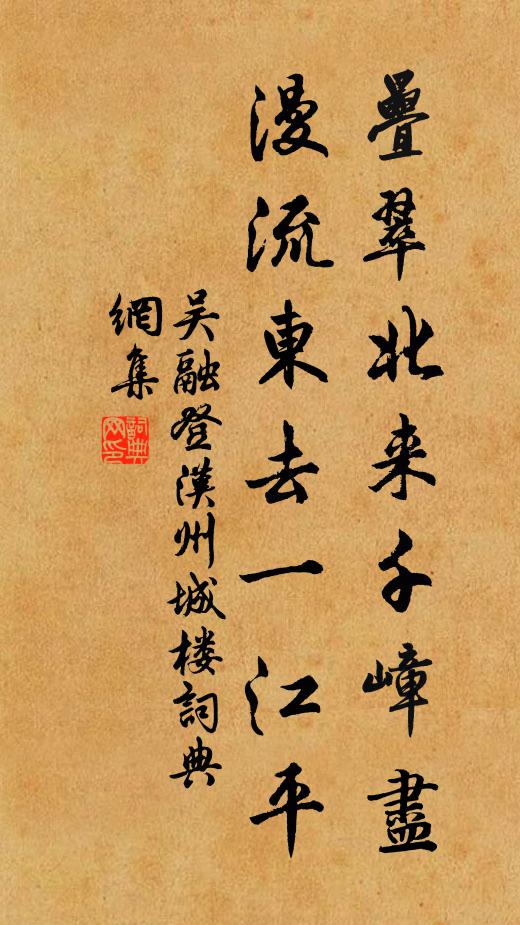 疊翠北来千嶂盡
漫流東去一江平
吴融登漢州城楼詞典
網集
詞典网印